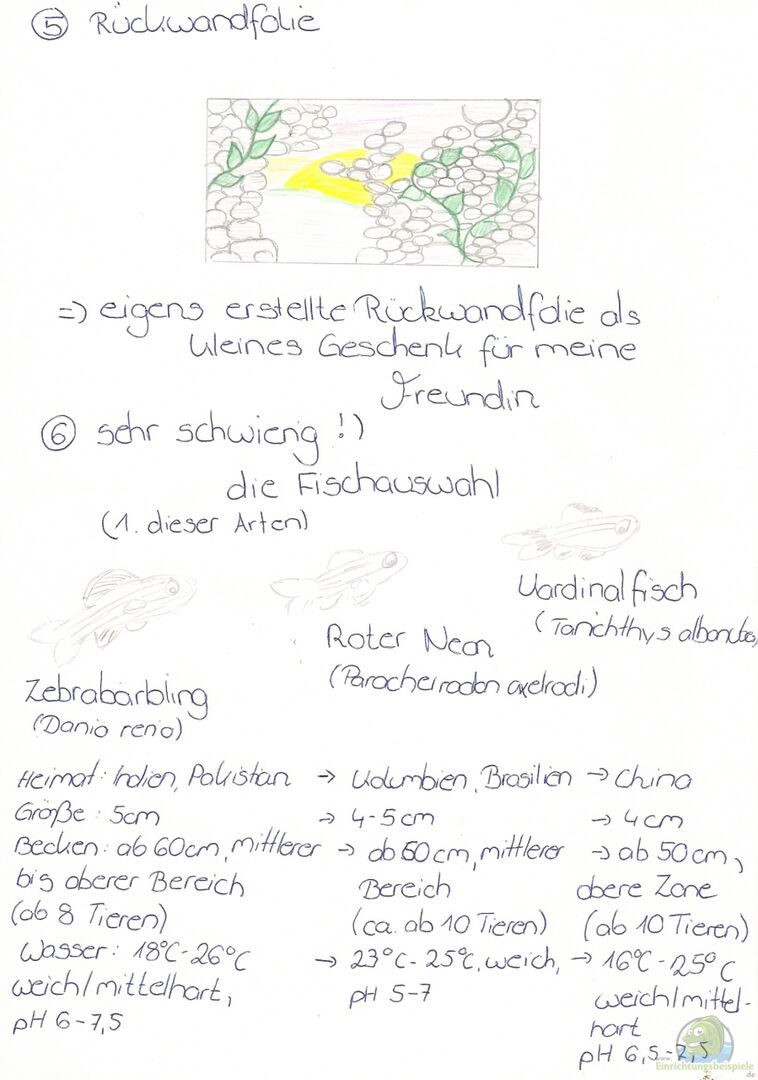 ⑤ Rückwandfolie
=> eigens erstellte Rückwandfolie als
kleines Geschenk für meine
Freundin
⑥ sehr schwierig !)
die Fischauswahl
(1. dieser Arten)
Kardinalfisch
(Tanichthys albonubes)
Roter Neon
(Paracheirodon axelrodi)
Zebrabärbling
(Danio rerio)
Heimat: Indien, Pakistan → Kolumbien, Brasilien → China
Größe: 5cm → 4-5cm → 4cm
Becken: ab 60cm, mittlerer → ab 60cm, mittlerer → ab 50cm,
bis oberer Bereich Bereich obere Zone
(ab 8 Tieren) (ca. ab 10 Tieren) (ab 10 Tieren)
Wasser: 18°C-26°C → 23°C-25°C, weich, → 16°C-25°C
weich/mittelhart, pH 5-7 weich/mittel-
pH 6-7,5 hart
pH 6,5-7,5
www.
Einrichtungsbeispiele
.de